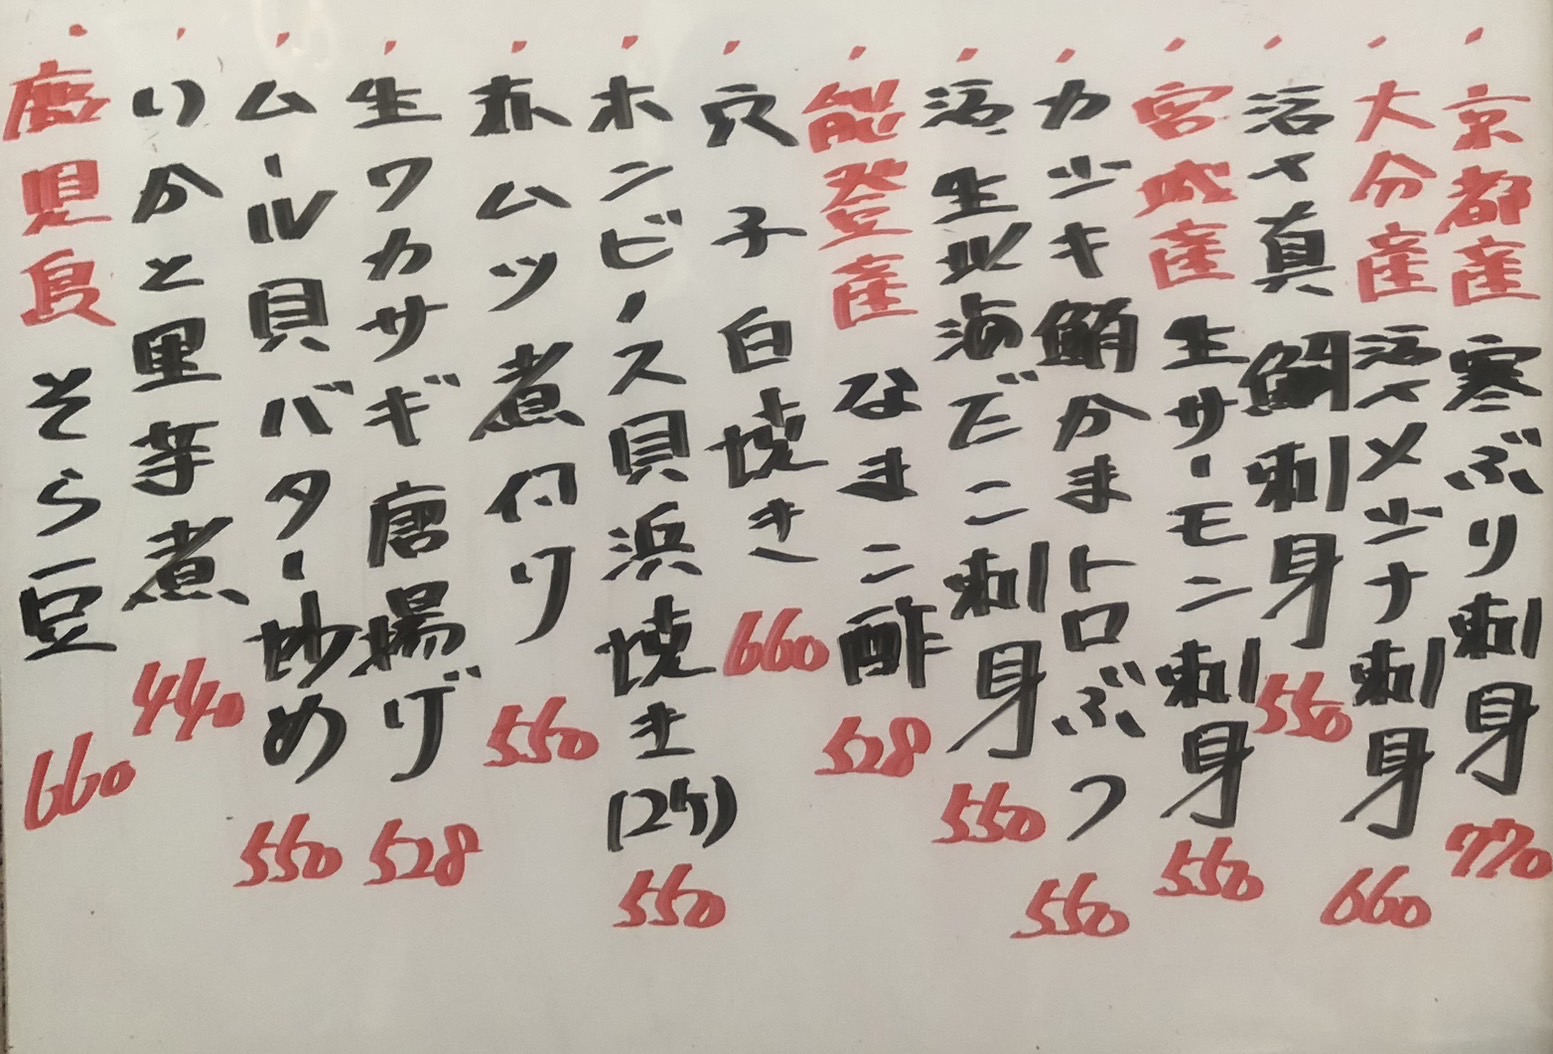 ・京都産 寒ぶり刺身 770
・大分産 活〆メジナ刺身 660
・活〆真鯛刺身 550
・宮城産 生サーモン刺身 550
・カジキ鮪かまトロぶつ 550
・活生北海だこ刺身 550
・能登産 なまこ酢 528
・穴子白焼き 660
・ホンビノス貝浜焼き(2ケ) 550
・赤ムツ煮付け 550
・生ワカサギ唐揚げ 528
・ムール貝バター炒め 550
・いかと里芋煮 440
・鹿児島 そら豆 660